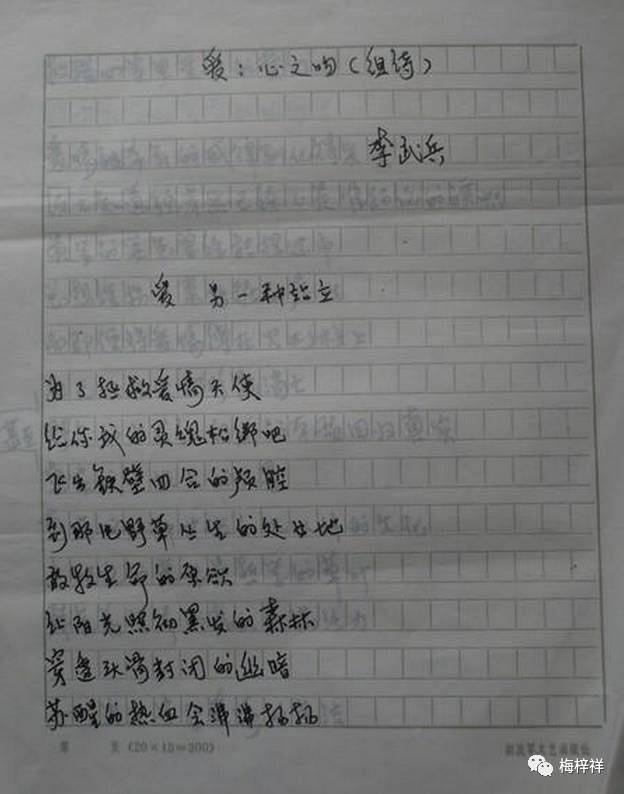 爱：心之吻（组诗）
李武兵
爱 另一种站立
为了拯救爱情天使
给你我的灵魂松绑吧
飞出铁壁四合的颅腔
到那片野草丛生的处女地
散放生命的原欲
让阳光照彻黑发的森林
穿透头颅封闭的幽暗
苏醒的热血会沸沸扬扬
第 页 (20×15=300)
梅梓祥